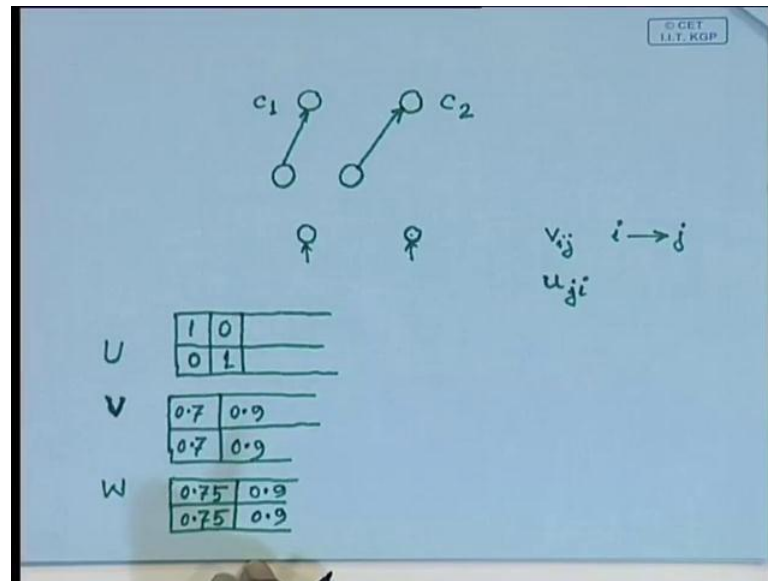 © CET
I.I.T. KGP
C1 C2
Vij i → j
uji
U
1 0
0 1
V
0.7 0.9
0.7 0.9
W
0.75 0.9
0.75 0.9